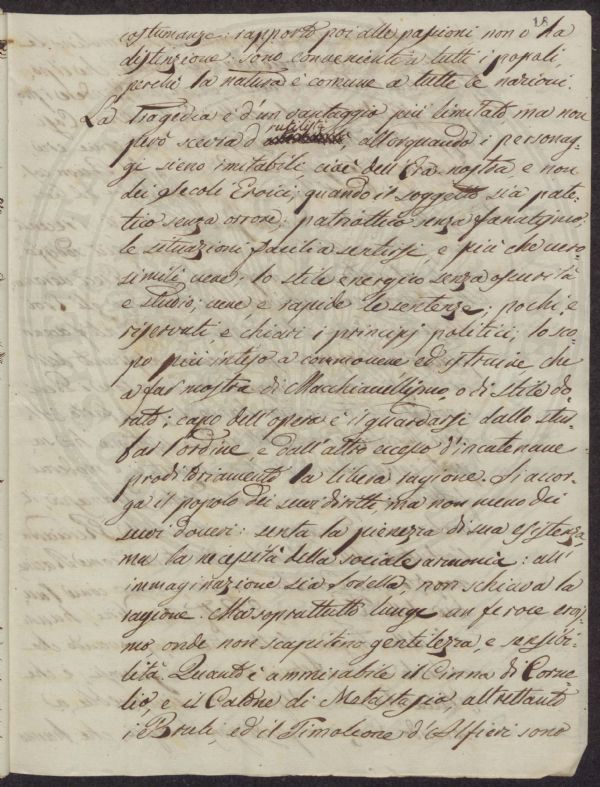 18
costumanze: rapporto poi alle passioni non v'ha
distinzione: sono convenienti a tutti i popoli,
perchè la natura è comune a tutte le nazioni.
La Tragedia è d'un vantaggio più limitato ma non
però scevra d'utilità allorquando i personag-
gi sieno imitabili, cioè dell'Era nostra, e non
dei Secoli Eroici; quando il soggetto sia pate-
tico senza orrore; patriottico senza fanatismo;
le situazioni facili a sentirsi, e più che vero-
simili vere; lo stile energico senza oscurità
e studio; vere e rapide le sentenze; pochi, e
riservati, e chiari i principj politici; lo sco-
po più inteso a commovere ed istruire, che
a far mostra di Macchiavellismo, o di stile do-
rato; capo dell'opera è il guardarsi dallo stur-
bar l'ordine, e dall'altro eccesso d'incatenare
proditoriamente la libera ragione. Si accor-
ga il popolo dei suoi diritti, ma non meno dei
suoi doveri: senta la pienezza di sua esistenza,
ma la necessità della sociale armonia: all'
immaginazione sia sorella, non schiava la
ragione. Ma soprattutto lunge un feroce eroi-
smo, onde non scapitino gentilezza, e sensibi-
lità. Quanto è ammirabile il Cinna di Corne-
lio, e il Catone di Metastasio altrettanto
i Bruti, ed il Timoleone d'Alfieri sono